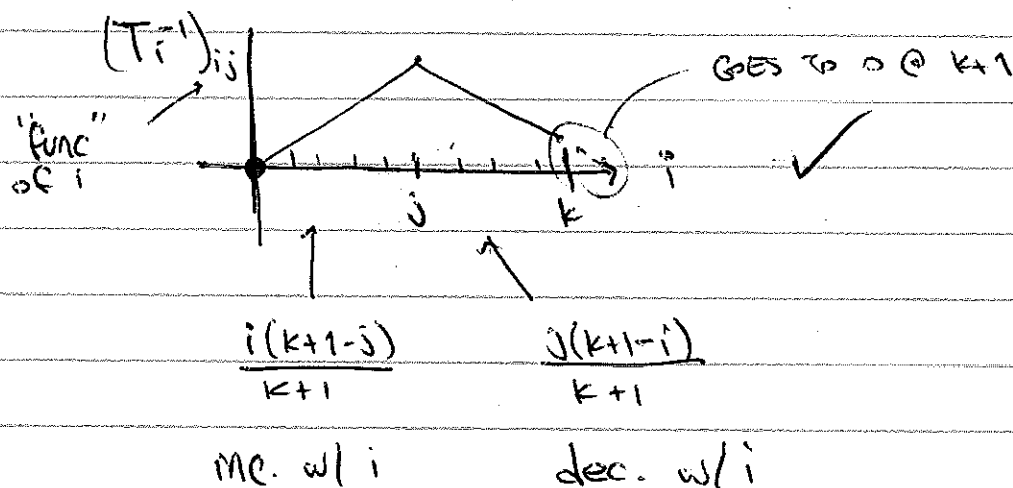 (T_i^{-1})_{ij}
GOES TO 0 @ k+1
"func"
of i
i
j
k
i(k+1-j)
k+1
j(k+1-i)
k+1
inc. w/ i
dec. w/ i